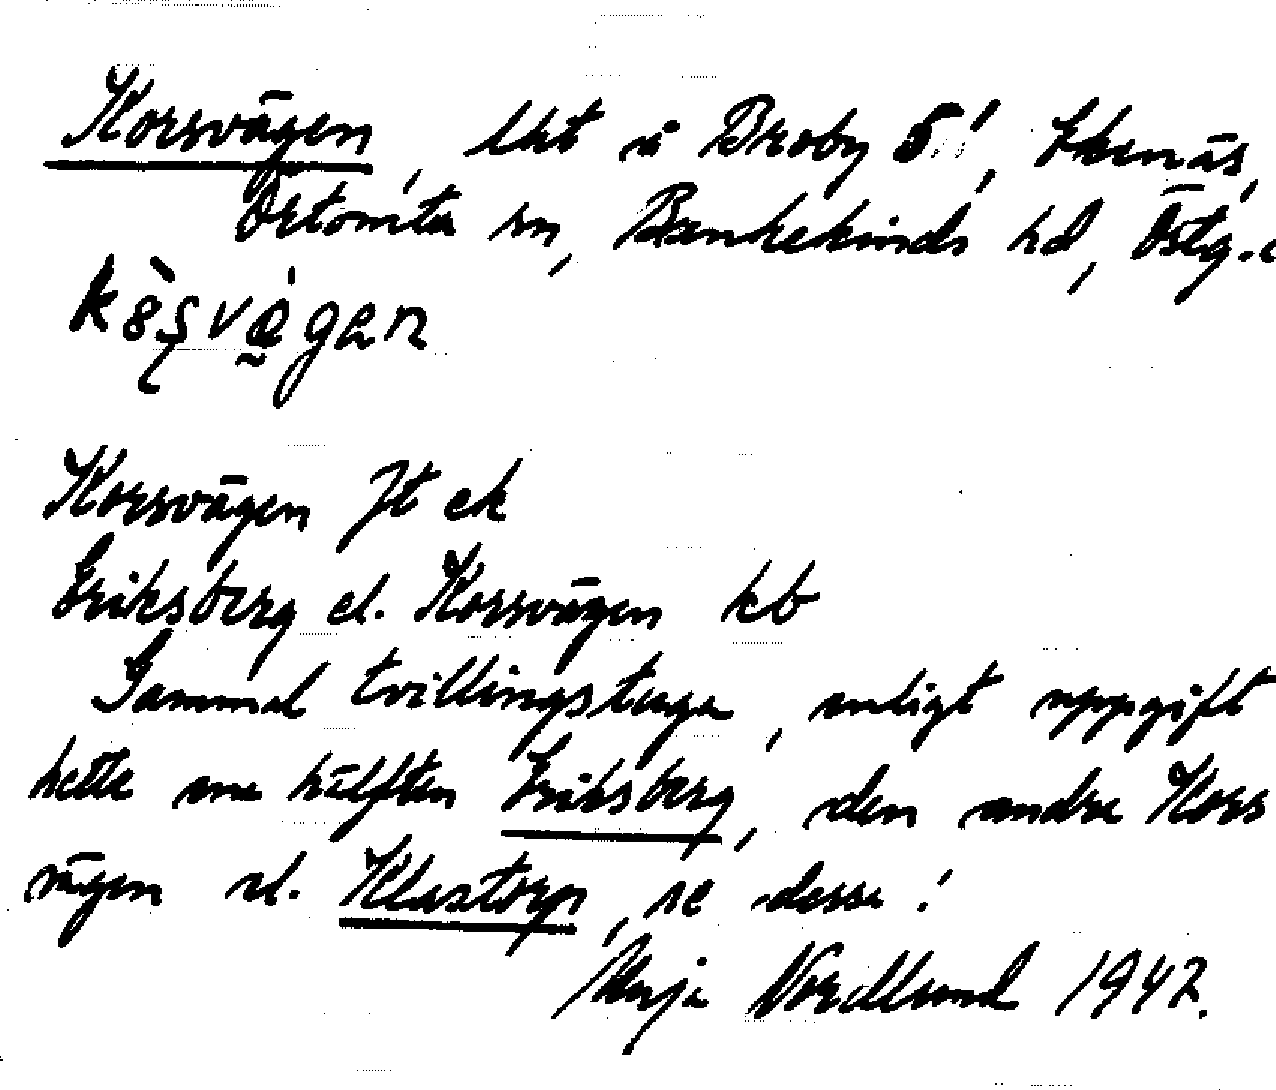 Korsvägen, lht i Broby 5!, Ekenäs,
Örtomta sn, Bankekinds hd, Östg.
Korsvägen Jt ek
Eriksberg el. Korsvägen kb
Gammal tvillingstuga, enligt uppgift
hette ena hälften Eriksberg, den andra Kors
vägen el. Klastorp, se dessa!
Maja Nordlund 1942.